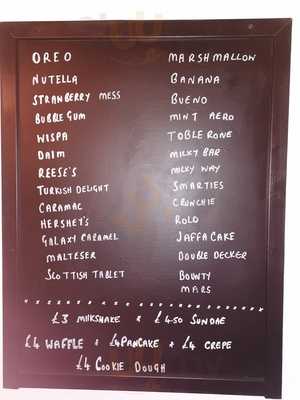 OREO
NUTELLA
STRAWBERRY MESS
BUBBLEGUM
WISPA
DAIM
REESE'S
TURKISH DELIGHT
CARAMAC
HERSHEY'S
GALAXY CARAMEL
MALTESER
SCOTTISH TABLET
MARSHMALLOW
BANANA
BUENO
MINT AERO
TOBLERONE
MILKY BAR
MILKY WAY
SMARTIES
CRUNCHIE
ROLO
JAFFA CAKE
DOUBLE DECKER
BOUNTY
MARS
£3 MILKSHAKE & £4.50 SUNDAE
£4 WAFFLE & £4 PANCAKE & £4 CREPE
£4 COOKIE DOUGH